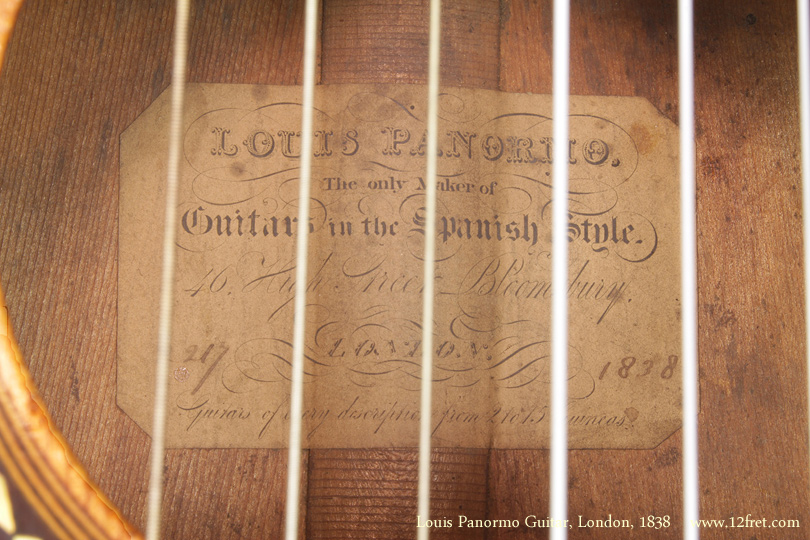 LOUIS PANORMO.
The only Maker of
Guitars in the Spanish Style.
46. High Street Bloomsbury.
LONDON.
217 1838
Guitars of every description from 2 to 15 Guineas.
Louis Panormo Guitar, London, 1838 www.12fret.com